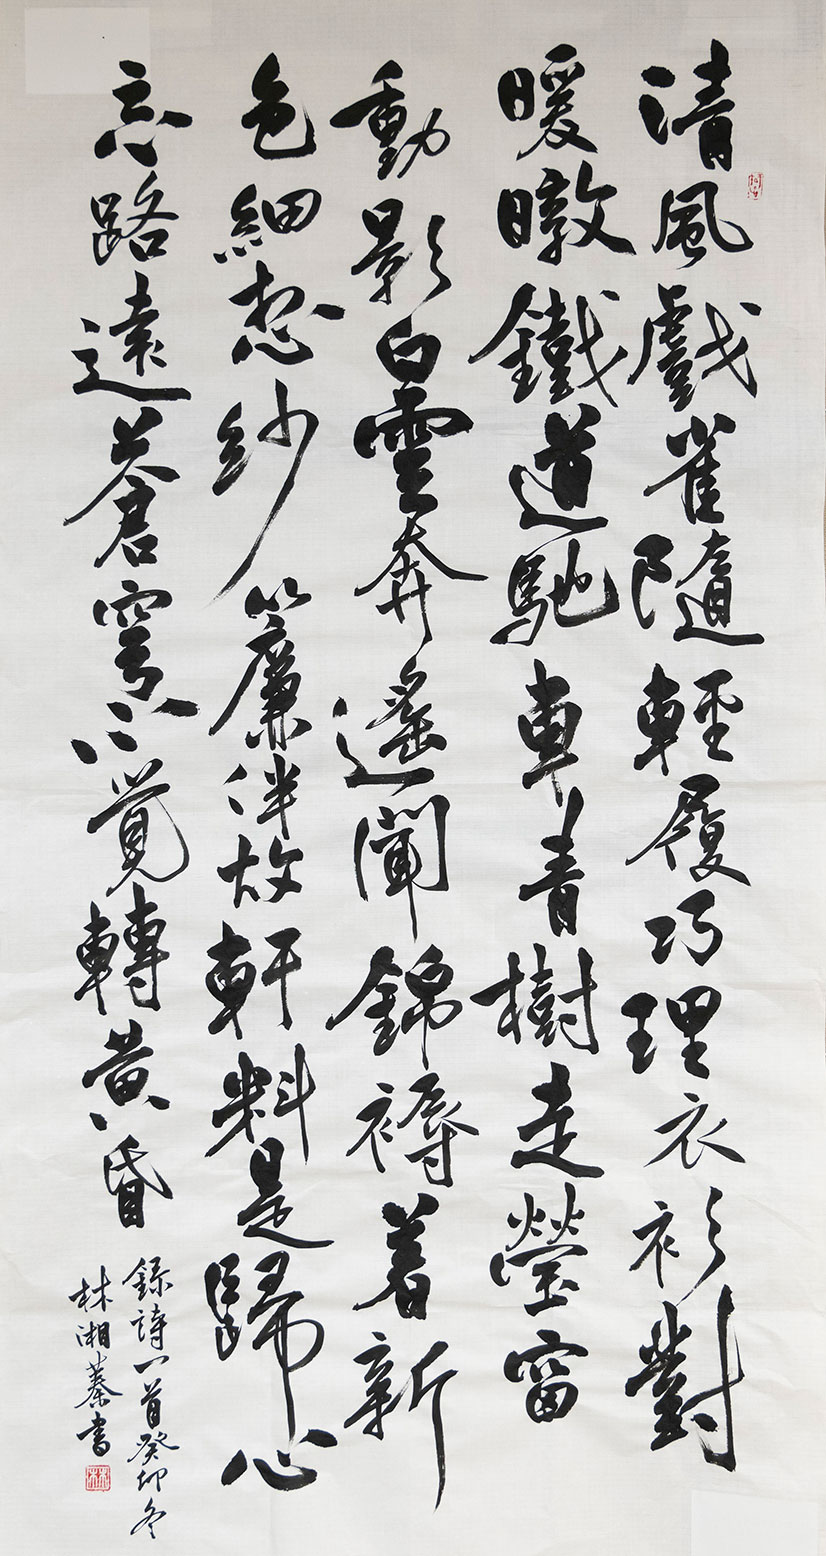 清風戲雀隨輕履巧理衣衫對
暖暾鐵道馳車青樹走瑩窗
動影白雲奔遙聞錦褥着新
色細想紗簾伴故軒料是歸心
忘路遠蒼穹不覺轉黃昏
錄詩一首癸卯冬
林湘蓁書